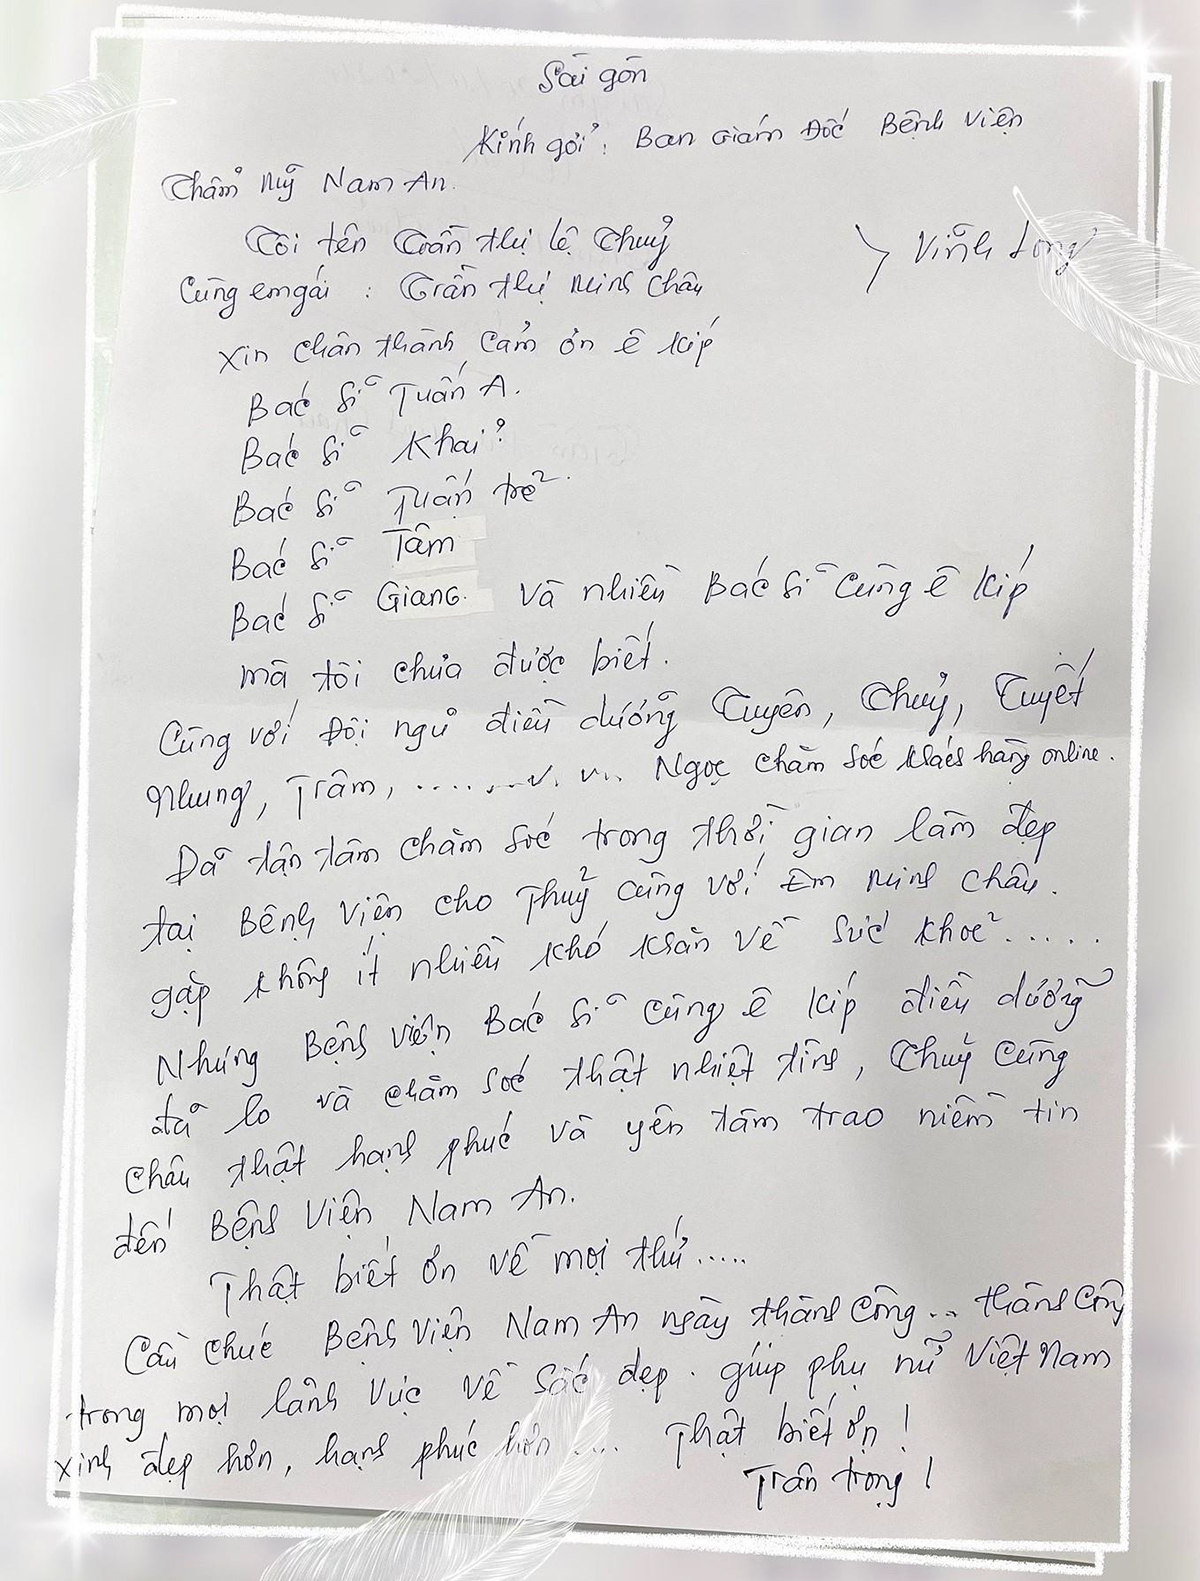 Sài gòn
Kính gởi: Ban Giám Đốc Bệnh Viện
Thẩm Mỹ Nam An.
Tôi tên Trần thị lệ Thuỷ
Vĩnh Long
Cùng em gái : Trần thị Minh Châu
xin chân thành Cảm ơn ê kíp
Bác sĩ Tuấn A.
Bác sĩ Khải
Bác sĩ Tuấn trẻ.
Bác sĩ Tâm
Bác sĩ Giang. và nhiều Bác sĩ Cùng ê kíp
mà tôi chưa được biết.
Cùng với Đội ngũ điều dưỡng Tuyên, Thuỷ, Tuyết
Nhung, Trâm, ......v.v... Ngọc chăm sóc khách hàng online.
Đã tận tâm chăm sóc trong thời gian làm đẹp
tại Bệnh Viện cho Thuỷ cùng với Em Minh Châu.
gặp không ít nhiều khó khăn về sức khoẻ.....
Nhưng Bệnh viện Bác sĩ Cùng ê kíp điều dưỡng
đã lo và chăm sóc thật nhiệt tình, Thuỷ Cùng
Châu thật hạnh phúc và yên tâm trao niềm tin
đến Bệnh Viện Nam An.
Thật biết ơn về mọi thứ.....
Cầu chúc Bệnh Viện Nam An ngày thành Công... thành Công
trong mọi lãnh vực về Sắc đẹp. giúp phụ nữ Việt Nam
xinh đẹp hơn, hạnh phúc hơn .... Thật biết ơn !
Trân trọng !